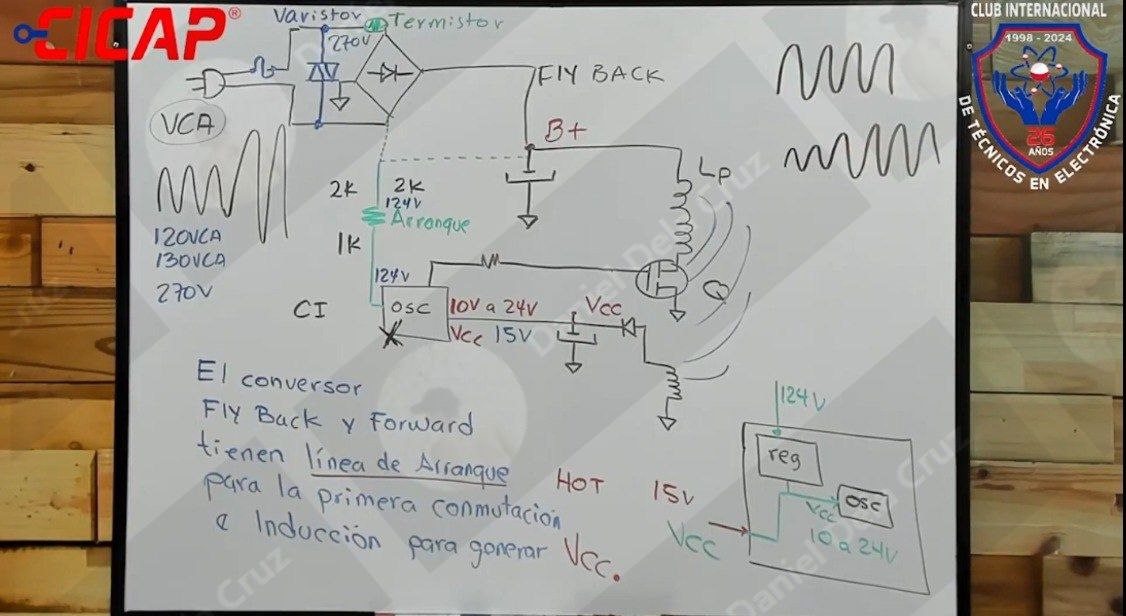 CICAP®
Varistor
Termistor
270V
FLY BACK
VCA
B+
Lp
2K
2K
124V
Arranque
1K
120VCA
130VCA
270V
124V
CI
OSC
10V a 24V
Vcc
Vcc 15V
Q
El conversor
Fly Back y Forward
tienen línea de Arranque
para la primera conmutación
e Inducción para gonerar Vcc.
HOT 15V
Vcc
124V
reg
OSC
Vcc
10 a 24V
CLUB INTERNACIONAL
1998 - 2024
26
AÑOS
DE TÉCNICOS EN ELECTRÓNICA
Daniel Dela Cruz
Daniel Dela Cruz